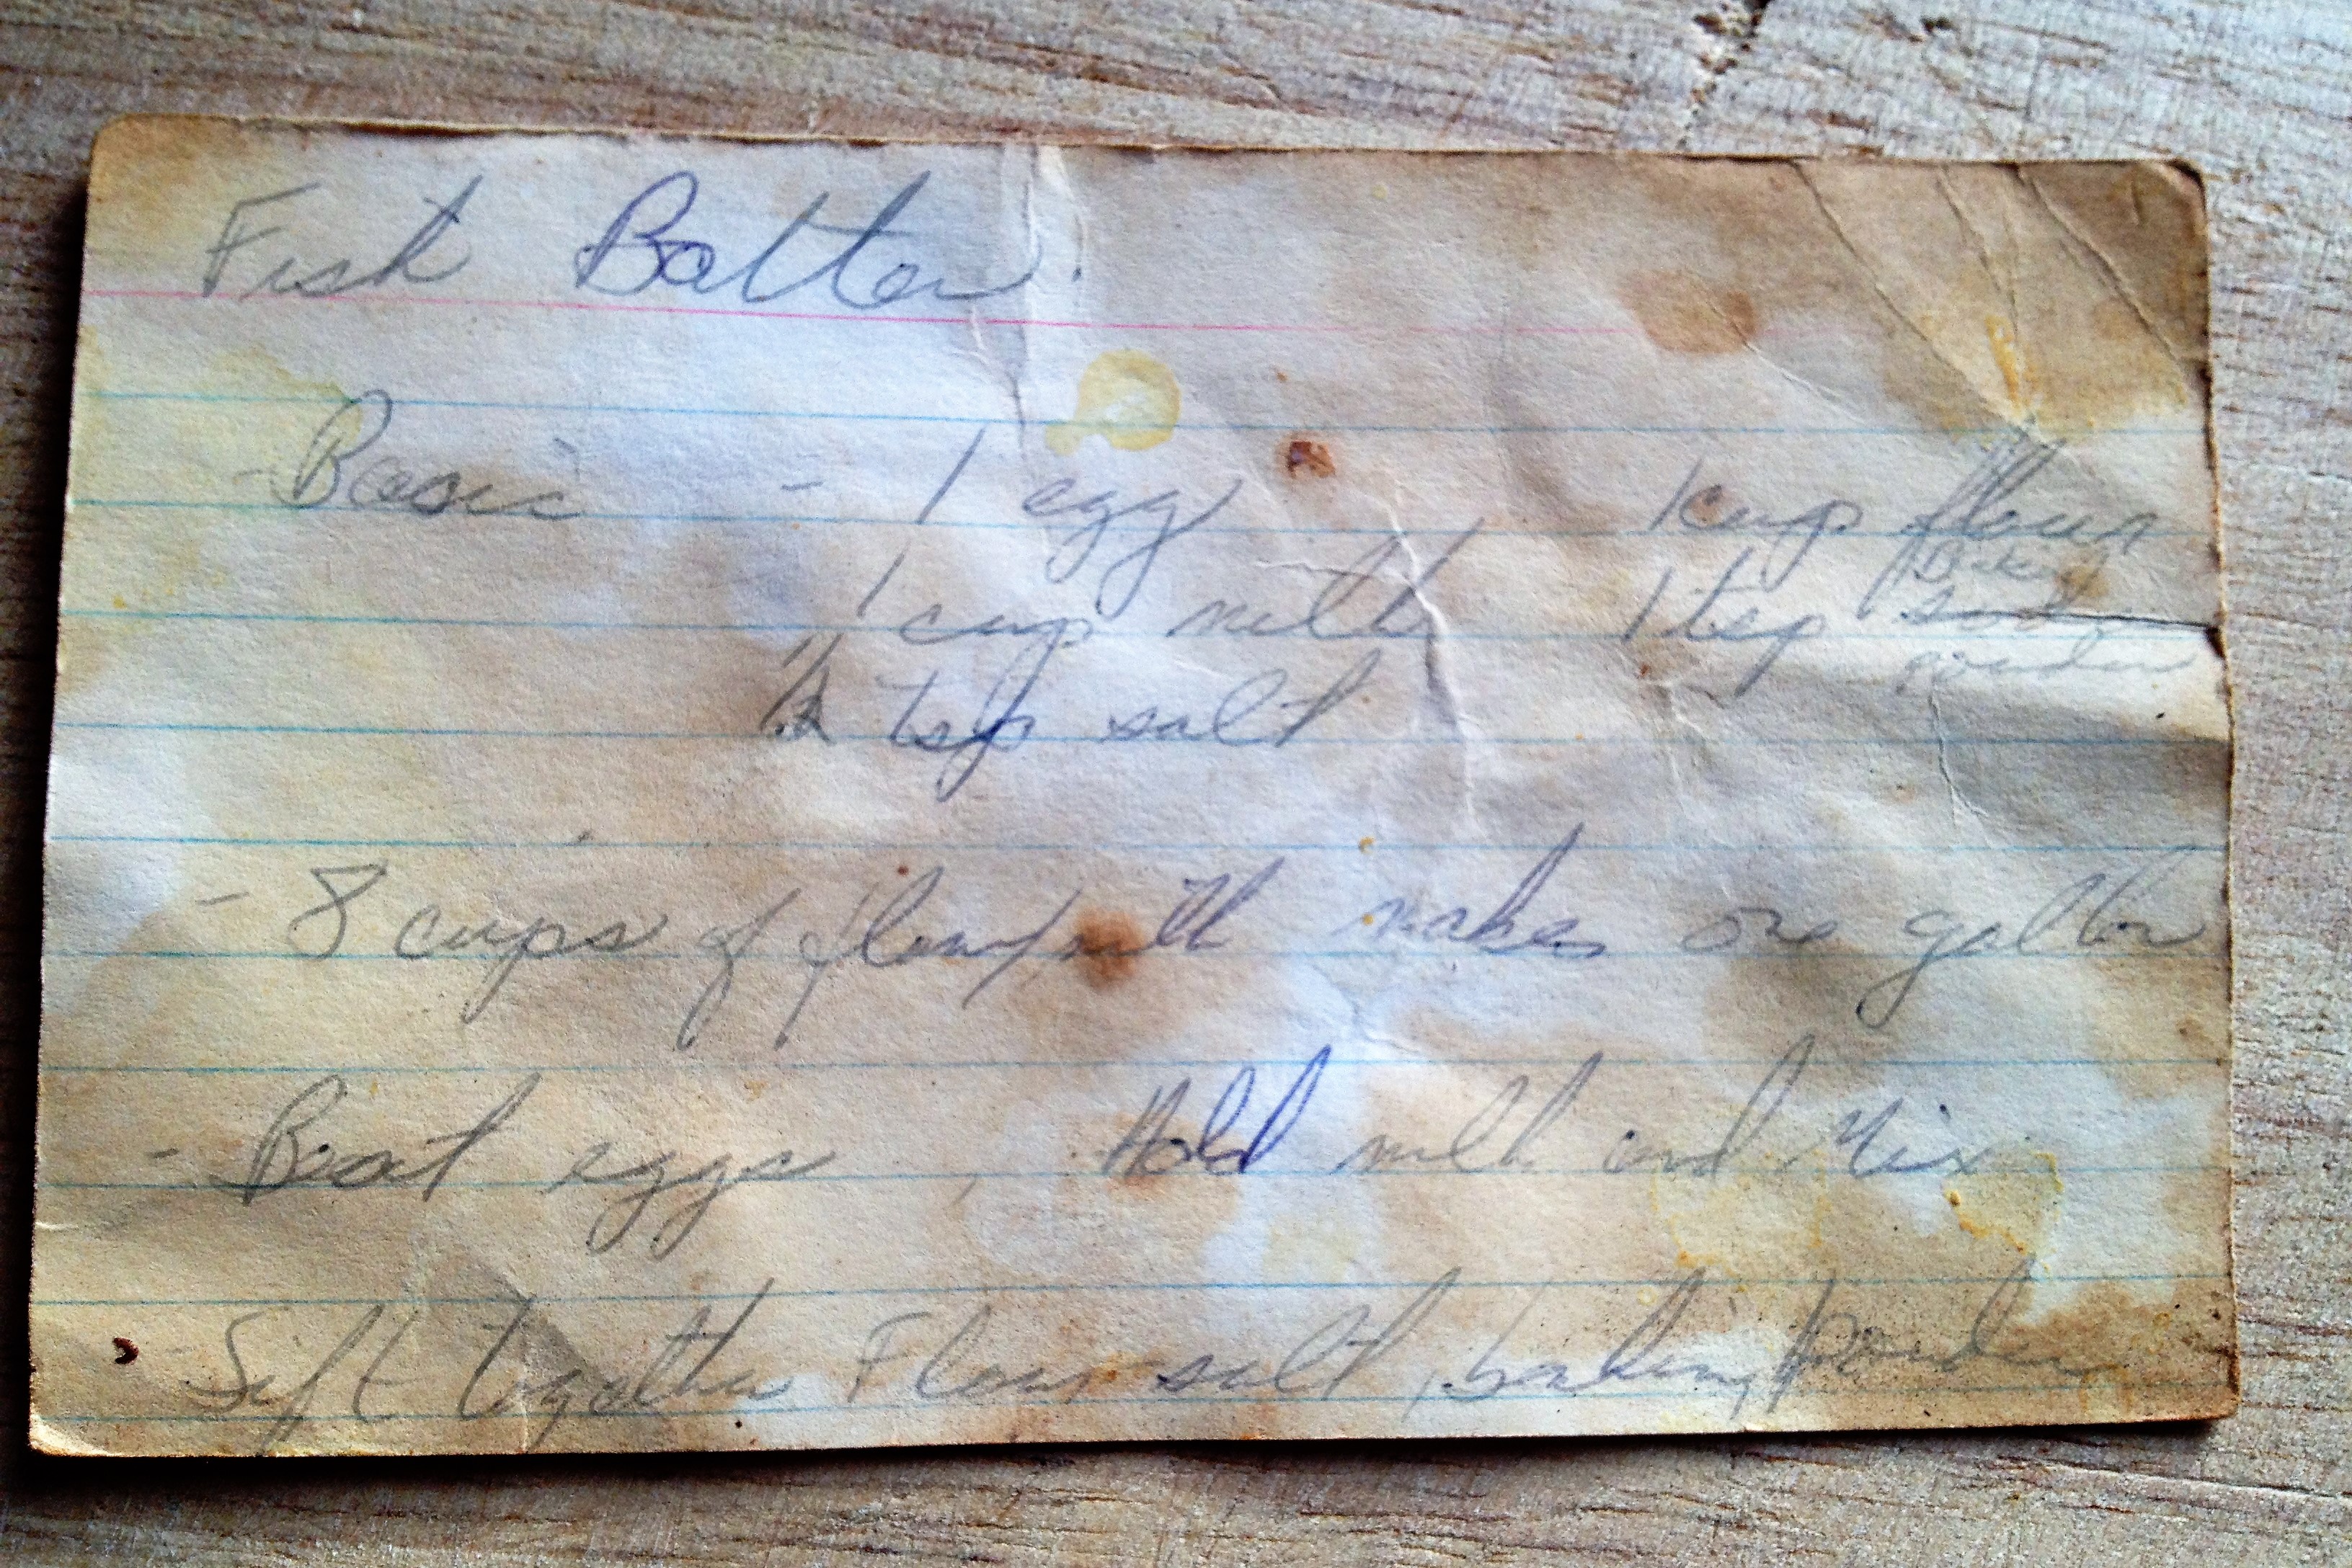 Fish Batter.
- Basic - 1 egg 1 cup flour
1 cup milk 1 tsp Baking soda powder
1/2 tsp salt
- 8 cups of flour/milk makes one gallon
- Beat eggs, Hold milk and Mix
- Sift together Flour salt, baking powder